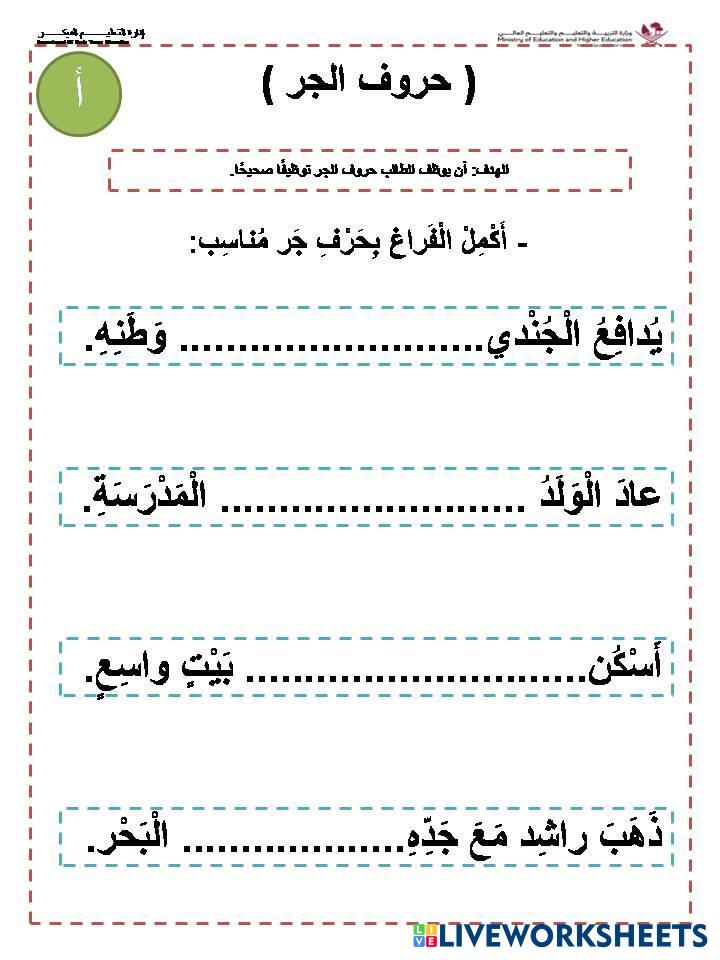 وزارة التربيـــة والتعليـــم والتعليـم العـالـــي
Ministry of Education and Higher Education
إدارة التعليـــم المبكـــر
أ
( حروف الجر )
الهدف: أن يوظف الطالب حروف الجر توظيفًا صحيحًا.
- أَكْمِلْ الْفَراغ بِحَرْفِ جَر مُناسِب:
يُدافِعُ الْجُنْدي.......................... وَطَنِهِ.
عادَ الْوَلَدُ .......................... الْمَدْرَسَةِ.
أَسْكُن............................. بَيْتٍ واسِعٍ.
ذَهَبَ راشِد مَعَ جَدِّهِ................... الْبَحْر.
LIVE LIVEWORKSHEETS